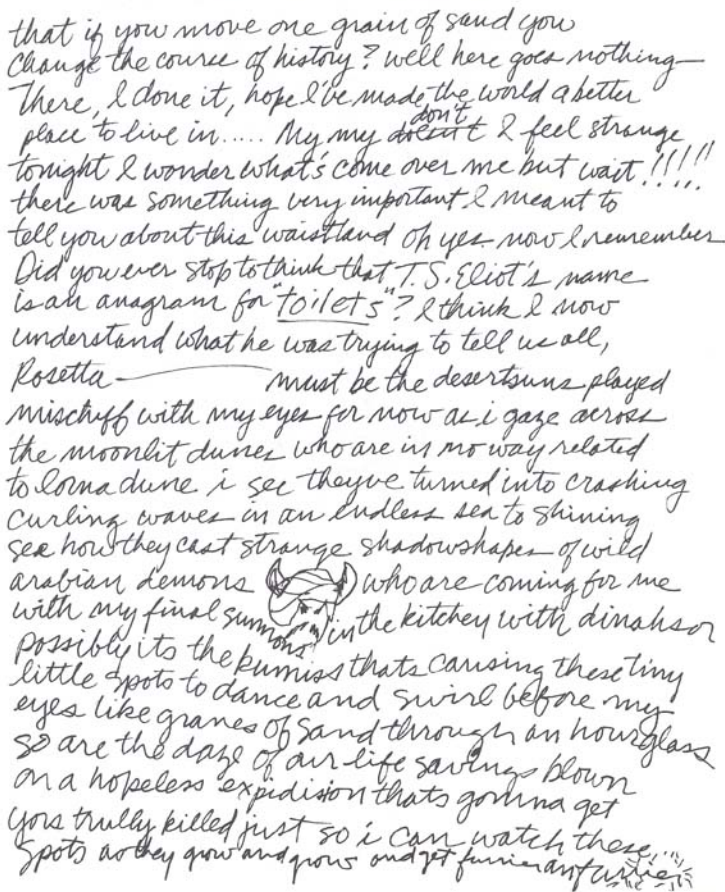 that if you move one grain of sand you
change the course of history? well here goes nothing—
There, I done it, hope I've made the world a better
place to live in..... My my doesn't don't I feel strange
tonight I wonder what's come over me but wait!!!!!
there was something very important I meant to
tell you about this waistland oh yes now I remember
Did you ever stop to think that T.S. Eliot's name
is an anagram for "toilets"? I think I now
understand what he was trying to tell us all,
Rosetta — must be the desertsuns played
mischiff with my eyes for now as i gaze across
the moonlit dunes who are in no way related
to lorna dune i see theyve turned into crashing
curling waves in an endless sea to shining
sea how they cast strange shadowshapes of wild
arabian demons who are coming for me
with my final summons in the kitchey with dinahsor
possibly its the kumiss thats causing these tiny
little spots to dance and swirl before my
eyes like granes of sand through an hourglass
so are the daze of our life savings blown
on a hopeless expidision thats gonna get
yors trully killed just so i can watch these
spots as they grow and grow and get funnier an funnier